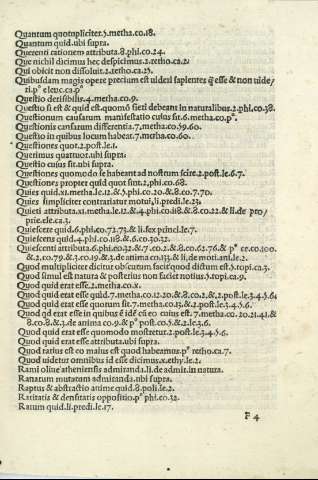 Quantum quotupliciter.5.metha.co.18.
Quantum quid.ubi supra.
Querenti rationem attributa.8.phi.co.24.
Que nichil dicimus hec despicimus.2.retho.ca.2.
Qui obicit non dissoluit.2.retho.ca.25.
Quibusdam magis opere precium est uideri sapientes q̃ esse & non uide/
ri.pº elenc.ca.pº
Questio derisibilis.4.metha.co.9.
Questio si est & quid est.quomõ fieri debeant in naturalibus.2.phi.co.38.
Questionum causarum manifestatio cuius sit.6.metha.co.pº.
Questionis causarum differentia.7.metha.co.59.60.
Questio in quibus locum habeat.7.metha.co.60.
Questiones quot.2.post.le.1.
Querimus quattuor.ubi supra.
Questio cuius sit.ubi supra.
Questiones quomodo se habeant ad nostrum scire.2.post.le.6.7.
Questiones propter quid quot sint.2.phi.co.68.
Quies quid.xi.metha.le.12.&.5.phi.co.20.&.8.co.7.70.
Quies simpliciter contrariatur motui.li.predi.le.23.
Quieti attributa.xi.metha.le.12.&.4.phi.co.118.&.8.co.22.& li.de pro/
prie.ele.ca.3.
Quiescere quid.6.phi.co.72.73.& li.sex princi.le.7.
Quiescens quid.4.phi.co.118.&.6.co.30.32.
Quiescenti attributa.6.phi.co.32.&.7.co.2.&.8.co.62.76.& pº ce.co.100.
&.2.co.79.&.3.co.19.&.3.de anima co.133.& li.de moti.anl.le.2.
Quod multipliciter dicitur obscurum facit quod dictum est.5.topi.ca.3.
Quod simul est natura & posterius non facit notius.5.topi.ca.9.
Quod quid erat esse.2.metha.co.x.
Quod quid erat esse quid.7.metha.co.12.20.&.8.co.2.&.2.post.le.3.4.5.6.
Quod quid erat esse quorum sit.7.metha.co.13.&.2.post.le.3.4.5.6.
Quod qd erat esse in quibus é idé cũ eo cuius est.7.metha.co.20.21.41.&
8.co.8.&.3.de anima co.9.& pº post.co.5.&.2.le.3.6.
Quod quid erat esse quomodo mostretur.2.post.le.3.4.5.6.
Quod quid erat esse attributa.ubi supra.
Quod rarius est co maius est quod habeamus.pº retho.ca.7.
Quod uidetur omnibus id esse dicimus.x.ethy.le.2.
Rami oliue atheniensis admiranda.li.de admit.in natura.
Ranarum mutatarum admiranda.ubi supra.
Raptus & abstractio anime quid.8.poli.le.2.
Raritatis & densitatis oppositio.pº phi.co.32.
Rarum quid.li.predi.le.17.
F 4